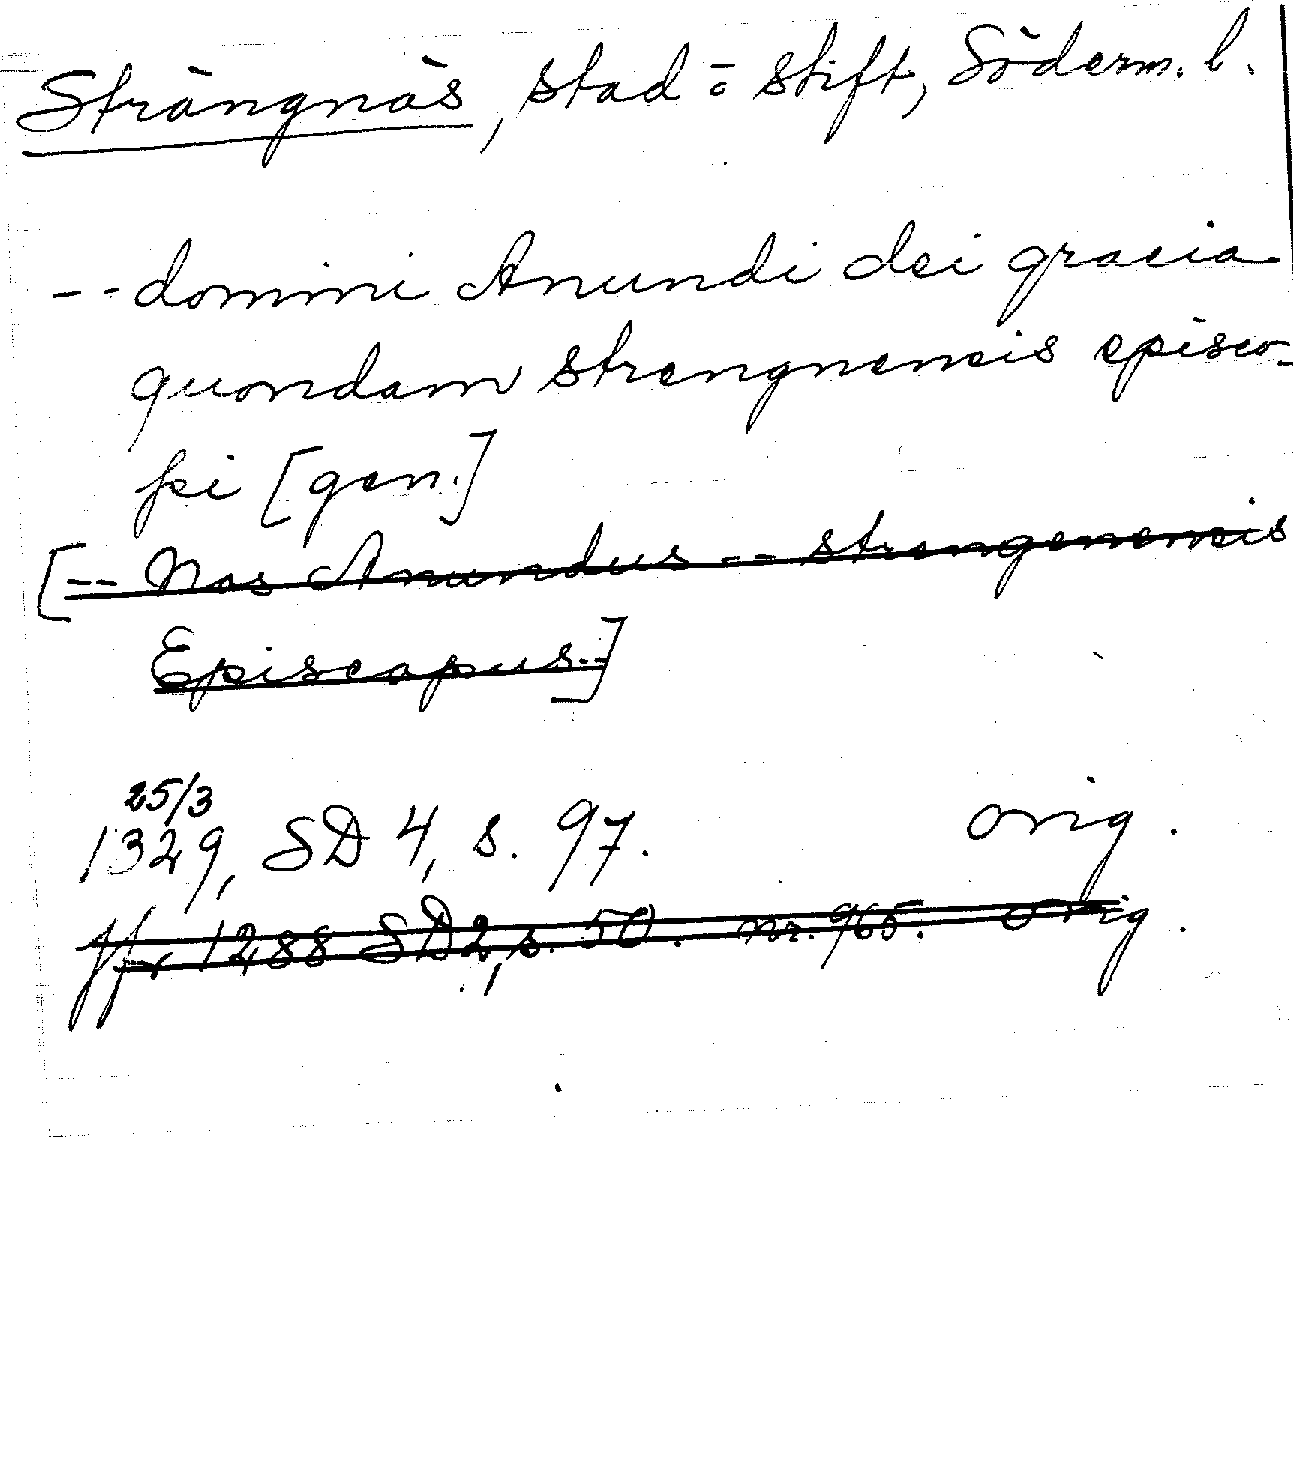 Strängnäs, stad o. stift, Söderm. l.
-- domini Anundi dei gracia
quondam strengnensis episco-
pi [gen.]
[-- Nos Anundus -- strengenensis
Episcopus.-]
25/3
1329, SD 4, s. 97. orig.
Jfr 1288 SD 2, s. 50. nr. 965. orig.